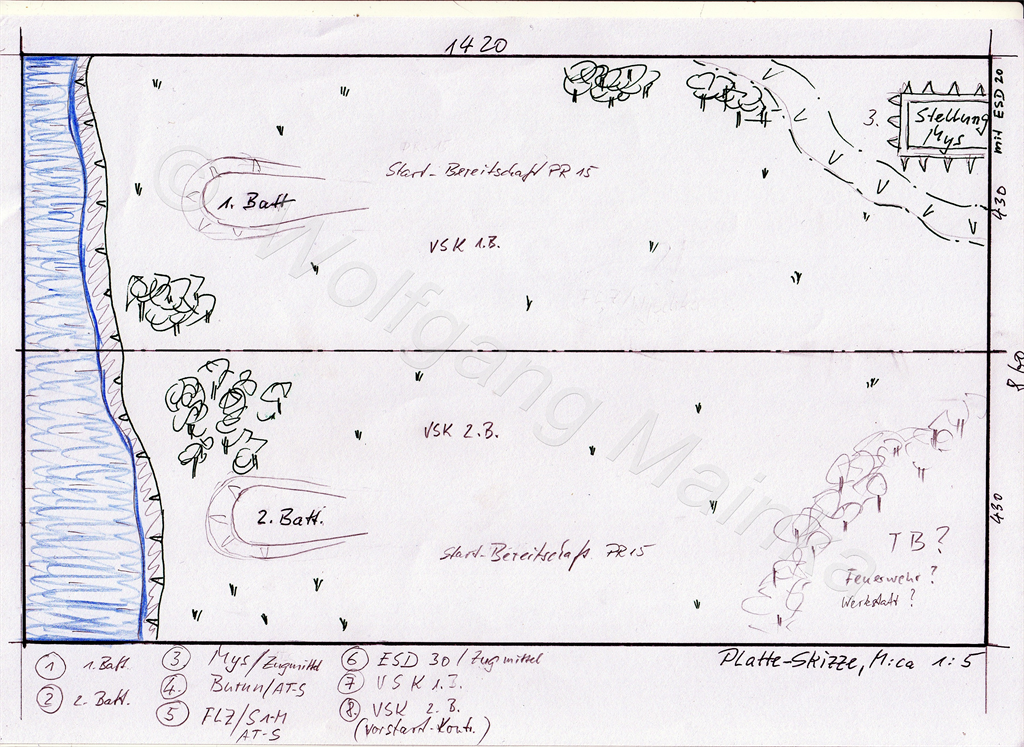 1420
mit ESD 20
3.
Stellung
Mys
Start-Bereitschaft PR 15
1. Batt
430
VSK 1.B.
© Wolfgang Mainka
860
VSK 2.B.
2. Batt.
430
Start-Bereitschaft PR15
TB?
Feuerwehr?
Werkstatt?
Platte-Skizze, M: ca 1:5
1 1. Batt.
2 2. Batt.
3. Mys/Zugmittel
4. Burun/AT-S
5 FLZ/S1-M
AT-S
6 ESD 30/Zugmittel
7 VSK 1.B.
8. VSK 2. B.
(Vorstart-Kontr.)